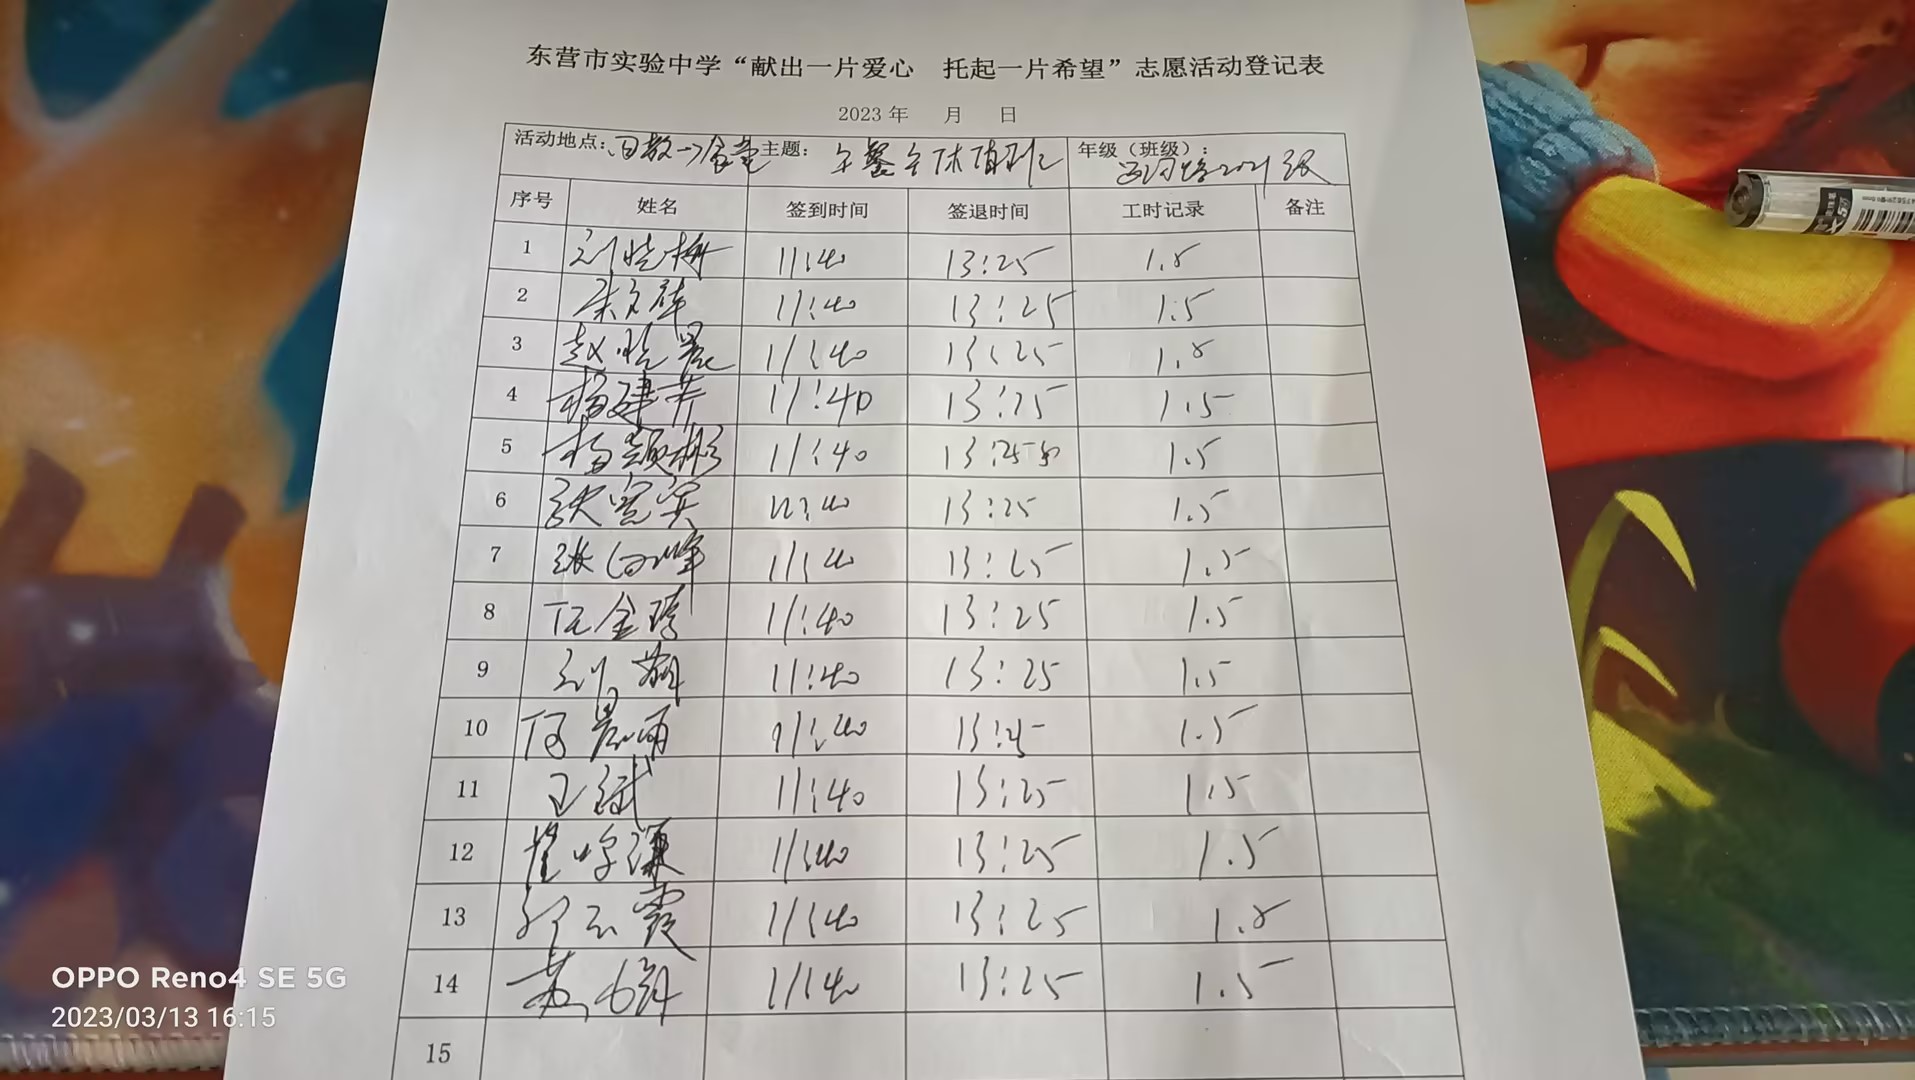 东营市实验中学“献出一片爱心 托起一片希望”志愿活动登记表
2023 年 月 日
活动地点: 主题: 午餐午休值班 年级（班级）: 2021级
序号 姓名 签到时间 签退时间 工时记录 备注
1 刘晓梅 11:40 13:25 1.5
2 11:40 13:25 1.5
3 赵晓晨 11:40 13:25 1.5
4 杨建芳 11:40 13:25 1.5
5 杨颢彬 11:40 13:25 1.5
6 13:25 1.5
7 11:40 13:25 1.5
8 任金琦 11:40 13:25 1.5
9 11:40 13:25 1.5
10 何晨雨 11:40 13:25 1.5
11 王斌 11:40 13:25 1.5
12 崔 11:40 13:25 1.5
13 霞 11:40 13:25 1.5
14 11:40 13:25 1.5
15
OPPO Reno4 SE 5G
2023/03/13 16:15